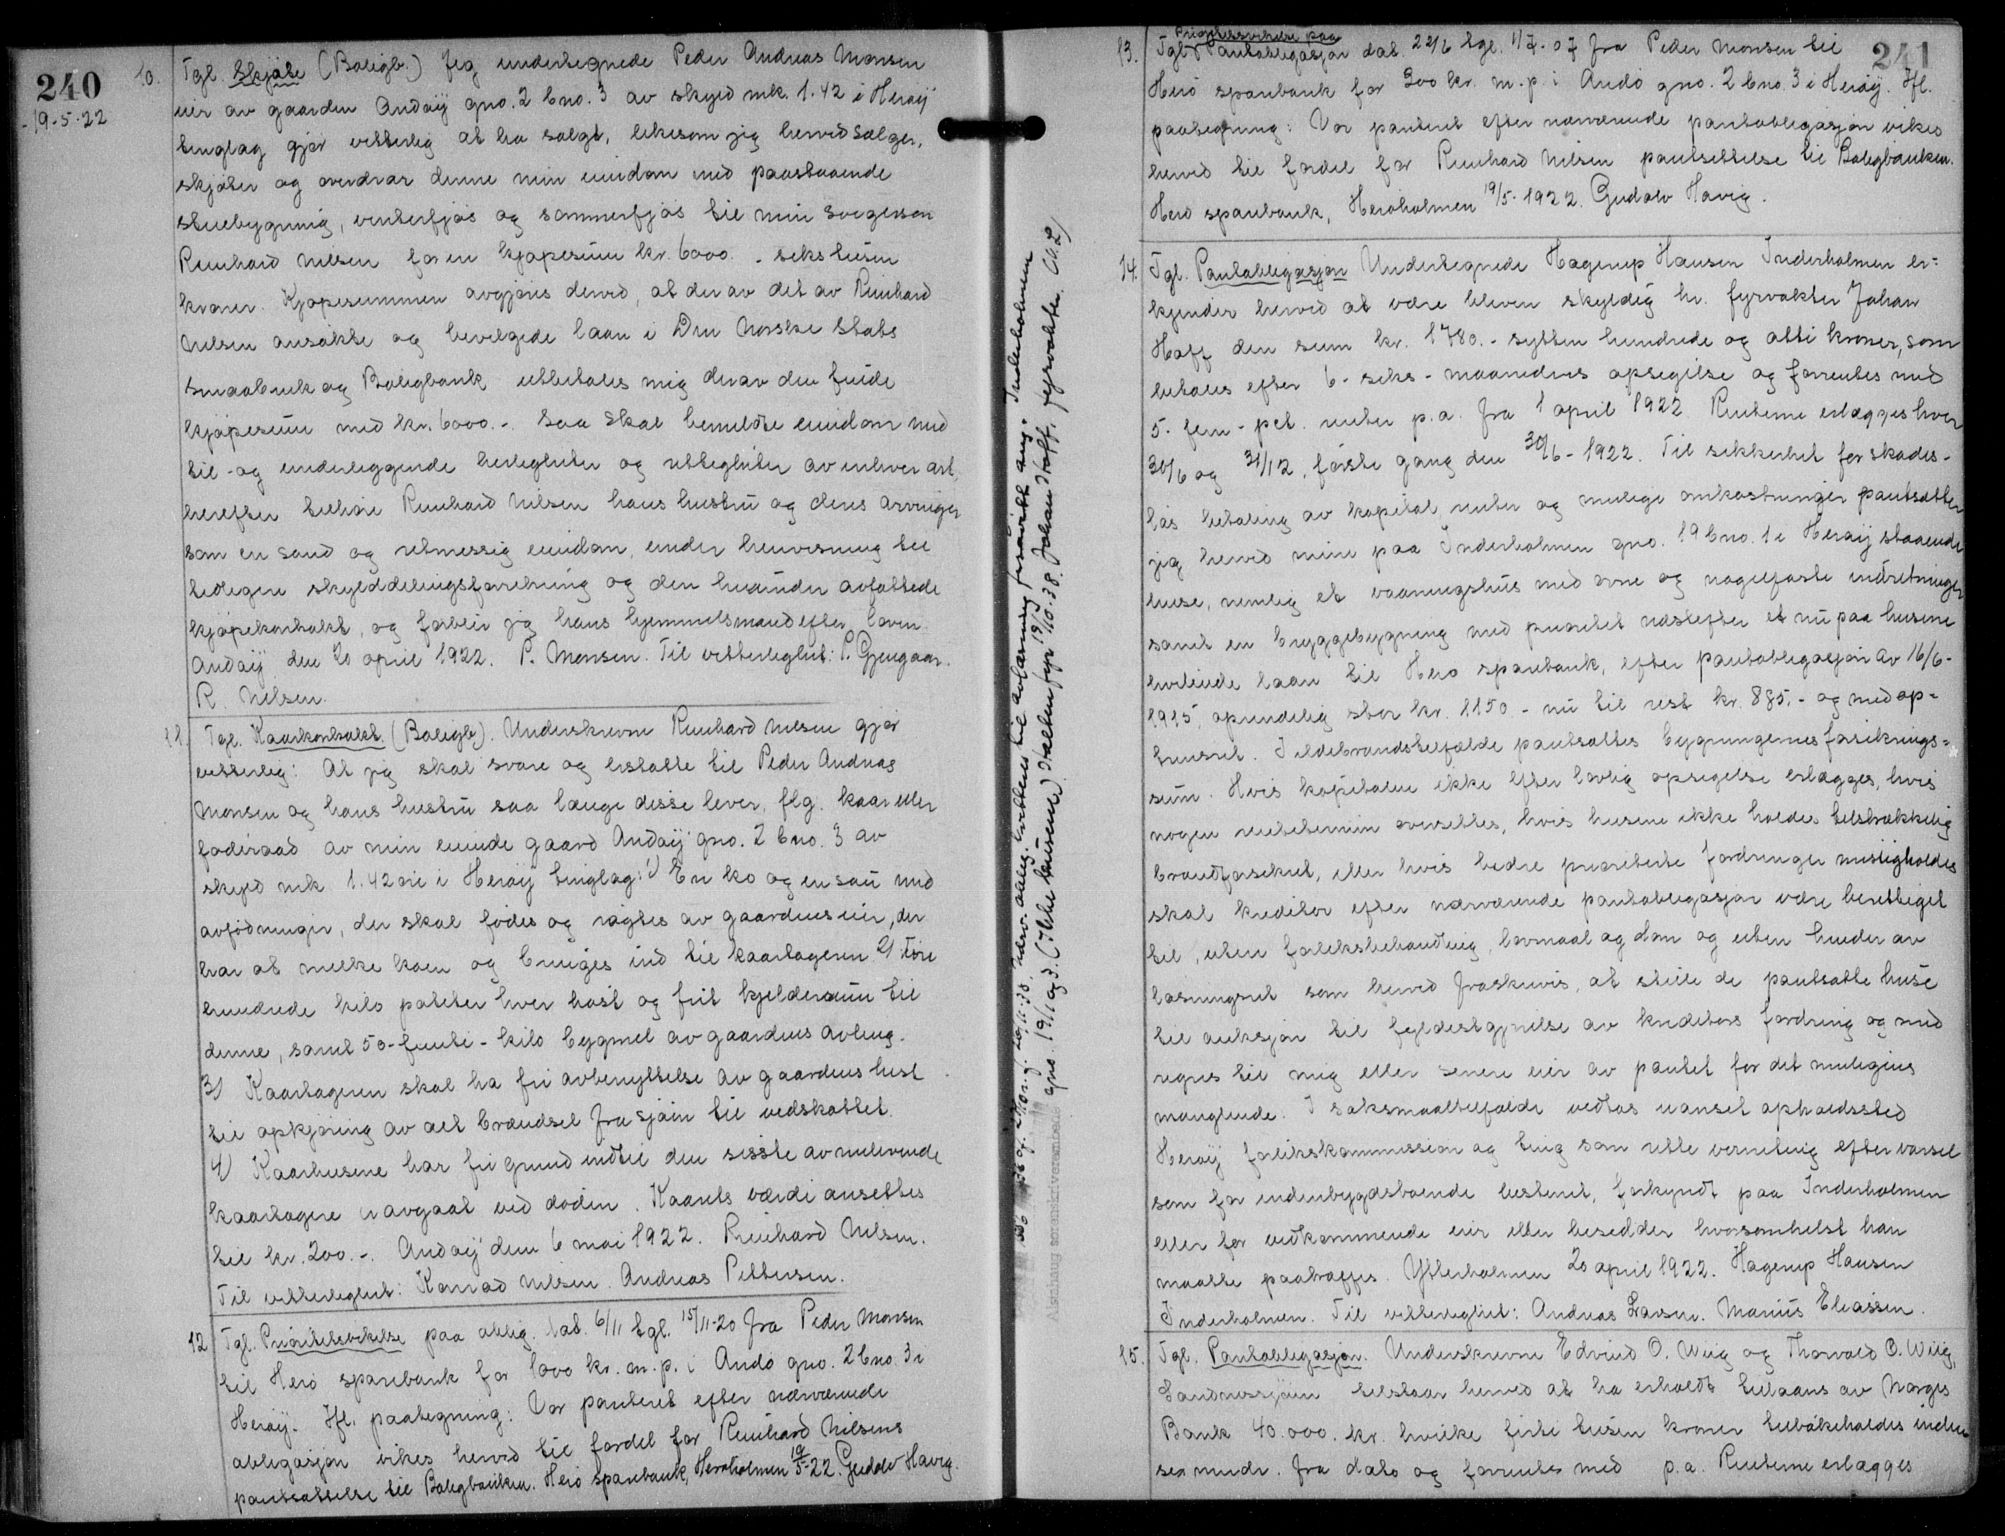 240
-19-5-22
10. Tgl. Skjøte (Boligb.) Jeg undertegnede Peder Andreas Monsen
eier av gaarden Andøy gno. 2 bno. 3 av skyld mk. 1.42 i Herøy
tinglag gjør vitterlig at ha solgt, likesom jeg herved sælger,
skjøter og overdrar denne min eiendom med paastaaende
stuebygning, vinterfjøs og sommerfjøs til min svigersøn
Reinhard Nilsen for en kjøpesum kr. 6000.- seks tusen
kroner. Kjøpesummen avgjøres derved, at der av det av Reinhard
Nilsen ansøkte og bevilgede laan i Den Norske Stats
Smaabruk og Boligbank utbetales mig derav den fulde
kjøpesum med kr. 6000.-. Saa skal bemeldte eiendom med
til- og underliggende herligheter og rettigheter av enhver art,
herefter tilhøre Reinhard Nilsen hans hustru og deres arvinger
som en sand og retmessig eiendom, under henvisning til
tidligere skylddelingsforretning og den herunder avfattede
kjøpekontrakt, og forblir jeg hans hjemmelsmand efter loven.
Andøy den 20 april 1922. P. Monsen. Til vitterlighet: P. Gjengaar.
R. Nilsen.
11. Tgl. Kaarkontrakt. (Boligb). Underskrevne Reinhard Nilsen gjør
vitterlig: At jeg skal svare og erstatte til Peder Andreas
Monsen og hans hustru saa længe disse lever, flg. kaar eller
føderaad av min eiende gaard Andøy gno. 2 bno. 3 av
skyld mk. 1.42 øre i Herøy tinglag: 1) En ko og en sau med
avfødninger, der skal fødes og røgtes av gaardens eier, der
har at melke koen og bringes ind til kaartageren 2) Fire
hundrede kilo poteter hver høst og frit kjelderrum til
denne, samt 50-femti-kilo bygmel av gaardens avling.
3) Kaartageren skal ha fri avbenyttelse av gaardens hest
til opkjøring av alt brændsel fra sjøen til vedskottet.
4) Kaarhusene har fri grund indtil den sisste av nulevende
kaartagere er avgaat ved døden. Kaarets værdi ansettes
til kr. 200.-. Andøy den 6 mai 1922. Reinhard Nilsen.
Til vitterlighet: Konrad Nilsen. Andreas Pettersen.
12 Tgl. Prioritetsvikelse paa oblig. dat. 6/11 tgl. 15/11-20 fra Peder Monsen
til Herø sparebank for 1000 kr. m.p. i Andø gno. 2 bno. 3 i
Herøy. Ifl. paategning: Vor panteret efter nærværende
obligasjon vikes herved til fordel for Reinhard Nilsens
pantsættelse til Boligbanken. Herø sparebank, Herøholmen 19/5-22. Gudolv Havig.
gno. 19/1 og 3. (Ikke husene) 19/9 10.38. Johan Hoff, fyrvokter.
241
13. Tgl. Prioritetsvikelse paa
Pantobligasjon dat. 22/6 tgl. 1/7-07 fra Peder Monsen til
Herø sparebank for 300 kr. m.p. i Andø gno. 2 bno. 3 i Herøy. Ifl.
paategning: Vor panteret efter nærværende pantobligasjon vikes
herved til fordel for Reinhard Nilsen pantsettelse til Boligbanken.
Herø sparebank, Herøholmen 19/5-1922. Gudolv Havig.
14. Tgl. Pantobligasjon Undertegnede Hagerup Hansen Inderholmen er-
kjender herved at være bleven skyldig hr. fyrvokter Johan
Hoff den sum kr. 1780.- sytten hundrede og otti kroner, som
betales efter 6-seks-maaneders opsigelse og forrentes med
5-fem-pct. renter p.a. fra 1 april 1922. Renterne erlægges hver
30/6 og 31/12, første gang den 30/6-1922. Til sikkerhet for skades-
løs betaling av kapital renter og mulige omkostninger pantsætter
jeg herved mine paa Inderholmen gno. 19 bno. 1 i Herøy staaende
huse, nemlig et vaaningshus med ovne og nagelfaste indretninger
samt en bryggebygning med prioritet næstefter et nu paa husene
hvilende laan til Herø sparebank, efter pantobligasjon av 16/6-
1915, oprindelig stor kr. 1150.- nu til rest kr. 885.- og med op-
trinsret. I ildebrandstilfælde pantsættes bygningernes forsikrings-
sum. Hvis kapitalen ikke efter lovlig opsigelse erlægges, hvis
nogen rentetermin oversittes, hvis husene ikke holdes tilstrækkelig
brandforsikret, eller hvis bedre prioriterte fordringer misligholdes
skal kreditor efter nærværende pantobligasjon være berettiget
til, uten forliksbehandling, lovmaal og dom og uten hinder av
løsningsret som herved fraskrives, at stille de pantsatte huse
til auksjon til fyldestgjørelse av kreditors fordring og med
regres til mig eller senere eier av pantet for det muligens
manglende. I søksmaalstilfælde vedtas uanset opholdssted
Herøy forlikskommission og ting som rette verneting efter varsel
som for indenbygdsboende bestemt, forkyndt paa Inderholmen
eller for vedkommende eier eller besidder hvorsomhelst han
maatte paatræffes. Ytterholmen 20 april 1922. Hagerup Hansen
Inderholmen. Til vitterlighet: Andreas Larsen. Marius Eliassen.
15. Tgl. Pantobligasjon. Underskrevne Edvind O. Wiig og Thorvald O. Wiig,
Sandnessjøen tilstaar herved at ha erholdt tillaans av Norges
Bank 40.000. kr. hvilke firti tusen kroner tilbakebetales inden
sex mndr. fra dato og forrentes med p.a. Renterne erlægges